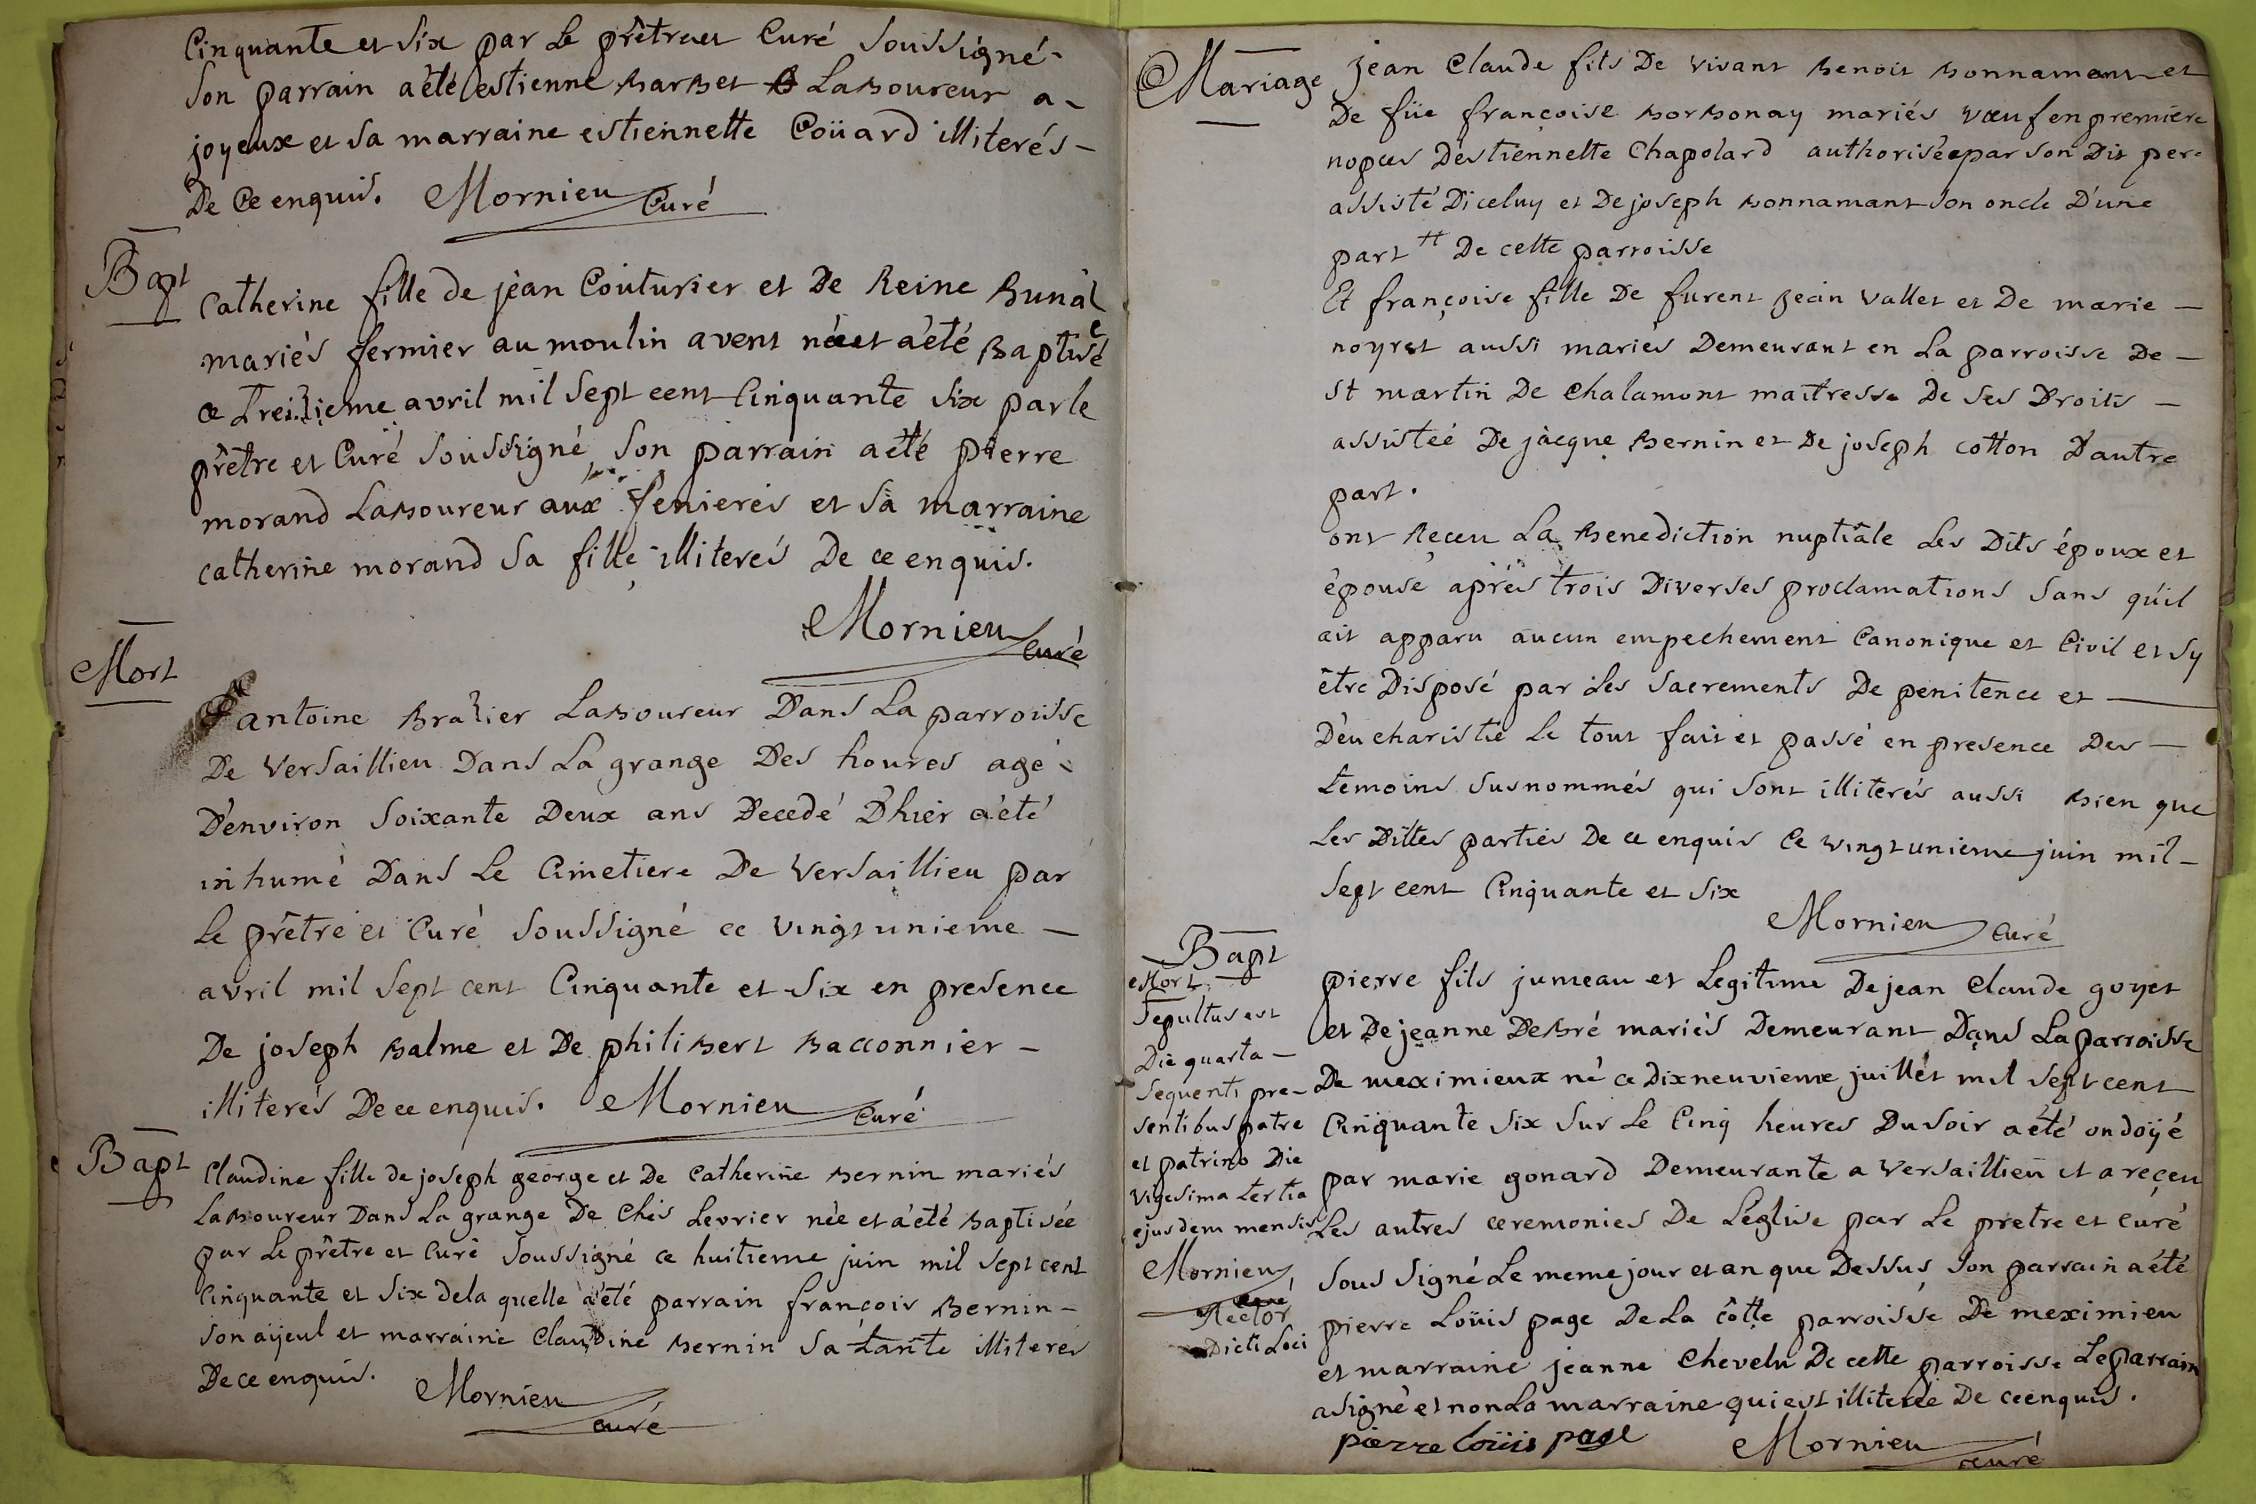 Cinquante et Six par Le prêtre et Curé Soussigné -
Son parrain a été estienne BarBet LaBoureur a -
joyeux et Sa marraine estiennette Coüard illiterés -
De Ce enquis. Mornieu Curé
Bapt
Catherine fille de jean Couturier et De Reine Bunal
mariés fermier au moulin avent née et a été Baptisée
ce Treizieme avril mil Sept cent Cinquante Six par le
prêtre et Curé Soussigné Son parrain a été pierre
morand LaBoureur aux fenieres et Sa marraine
catherine morand Sa fille illiterés De ce enquis.
Mornieu Curé
Mort
antoine Brazier LaBoureur Dans La parroisse
De Versaillieu Dans La grange Des houres agé
D'environ Soixante Deux ans Decedé D'hier a été
inhumé Dans Le Cimetiere De Versaillieu par
Le prêtre et Curé Soussigné ce vingt unieme -
avril mil Sept cent Cinquante et Six en presence
De joseph Balme et De philiBert Bacconnier -
illiterés De ce enquis. Mornieu Curé
Bapt
Claudine fille de joseph george et De Catherine Bernin mariés
LaBoureur Dans La grange De Chés Levrier née et a été Baptisée
par Le prêtre et Curé Soussigné ce huitieme juin mil Sept cent
Cinquante et Six de la quelle a été parrain françois Bernin -
Son aÿeul et marraine Claudine Bernin Sa Tante illiterés
De ce enquis.
Mornieu
curé
Mariage
jean Claude fils De vivant Benoit Bonnamant et
De füe françoise BorBonay mariés vœuf en premiere
nopces D'estiennette Chapolard authorisée par son Dit pere
assisté D'iceluy et De joseph Bonnamant Son oncle D'une
part # De cette parroisse
Et françoise fille De furent jean vallet et De marie -
noyret aussi mariés Demeurant en La parroisse De -
St martin De Chalamont maitresse De Ses Droits -
assisteé De jacque Bernin et De joseph cotton D'autre
part.
ont Reçeu La Benediction nuptiale Les Dits époux et
épouse aprés trois Diverses proclamations Sans qu'il
ait apparu aucun empechement Canonique et Civil et S'y
être Disposé par Les Sacrements De penitence et -
D'eucharistie Le tout fait et passé en presence Des -
temoins Susnommés qui Sont illiterés aussi Bien que
Les Dittes parties De ce enquis Ce vingt unieme juin mil -
Sept cent Cinquante et Six
Mornieu Curé
Bapt
pierre fils jumeau et Legitime De jean Claude goyet
et De jeanne DeBré mariés Demeurant Dans La parroisse
De meximieux né ce Dix neuvieme juillet mil Sept cent
Cinquante Six Sur Le Cinq heures Du Soir a été ondoÿé
par marie gonard Demeurante a Versaillieu et a reçeu
Les autres ceremonies De L'eglise par Le pretre et curé
Sous Signé Le meme jour et an que Dessus Son parrain a été
pierre Loüis page De La côtte parroisse De meximieu
et marraine jeanne Chevelu De cette parroisse Le parrain
a signé et non La marraine qui est illiterée De ce enquis.
pierre loüis page Mornieu
curé
Mort
Sepultus est
Die quarta -
Sequenti pre-
sentibus patre
et patrino Die
vigesima tertia
ejusdem mensis
Mornieu
Rector
Dicti Loci